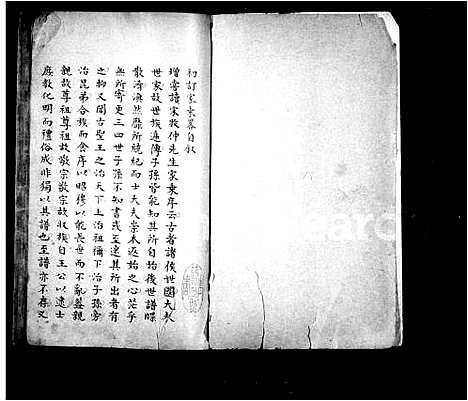 初訂家乘畧自敘
增嘗讀家牧仲先生家乘序云古者諸侯世國大夫
世家故世族遞傳子孫皆能知其所自始後世譜牒
散渙然靡所統紀而士大夫崇本返始之心茫乎
無所寄更三四世子孫不知書或至遠其所出者有
之物又聞古聖王之治天下上治祖禰下治子孫旁
治昆弟合族而食序以昭穆以能長世而不亂蓋親
親故尊祖尊祖故敬宗敬宗故收族自王公以逮士
庶教化明而禮俗成非獨以其譜也至譜亦不存又